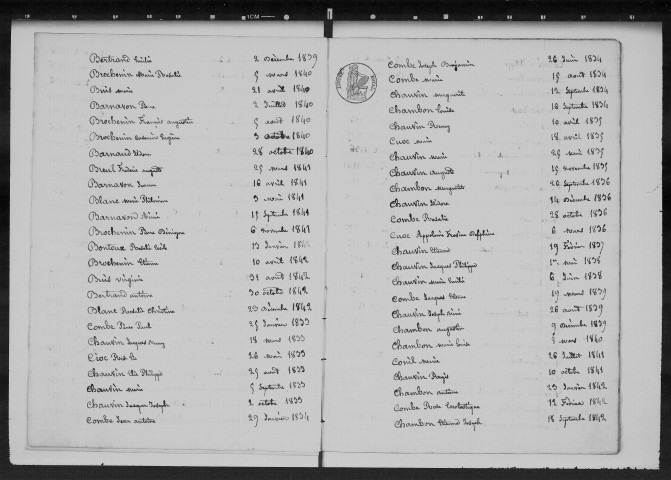 Bertrand Emilie 2 décembre 1839
Brochenin Marie Rosalie 5 mars 1840
Buis Marie 21 avril 1840
Barnavon Pierre 2 Juillet 1840
Brochenin François augustin 5 août 1840
Brochenin Eugène 3 octobre 1840
Barnaud 28 octobre 1840
Breuil Frédéric auguste 25 mars 1841
Barnavon 16 avril 1841
Blanc Marie Philomène 3 août 1841
Barnavon Marie 15 Septembre 1841
Brochenin Pierre Bénigne 6 novembre 1841
Bontoux Rosalie 13 Janvier 1842
Brochenin Etienne 10 avril 1842
Buis Virginie 31 août 1842
Bertrand antoine 30 octobre 1842
Blanc Rosalie Christine 23 décembre 1842
Combe Pierre Paul 25 Janvier 1833
Chauvin Jacques 18 mars 1833
26 mai 1833
Chauvin Philippe 25 août 1833
Chauvin Marie 5 Septembre 1833
Chauvin Jacques Joseph 2 octobre 1833
Combe Jean antoine 29 Janvier 1834
Combe Joseph Benjamin 26 Juin 1834
Combe Marie 15 août 1834
Chauvin Marguerite 12 Septembre 1834
Chambon Louise 16 Septembre 1834
Chauvin 10 avril 1835
Cuoc Marie 18 avril 1835
Chauvin Marie 25 mai 1835
Chauvin Auguste 15 novembre 1835
Chambon Marguerite 26 Septembre 1836
Chauvin 14 décembre 1836
Combe Rosalie 28 octobre 1836
Cuoc Appolonie Delphine 6 mars 1836
Chauvin Etienne 19 Février 1837
Chauvin Jacques Philippe 1er mai 1838
Chauvin Marie Emilie 6 Juin 1838
Combe Jacques 19 mars 1839
Chauvin Joseph 26 août 1839
Chambon augustin 9 décembre 1839
Chambon Marie Louise 5 mars 1840
Marie 26 Juillet 1841
Chauvin Régis 10 octobre 1841
Chambon antoine 23 Janvier 1842
Combe Rose Scholastique 12 Février 1842
Chambon Etienne Joseph 18 Septembre 1842